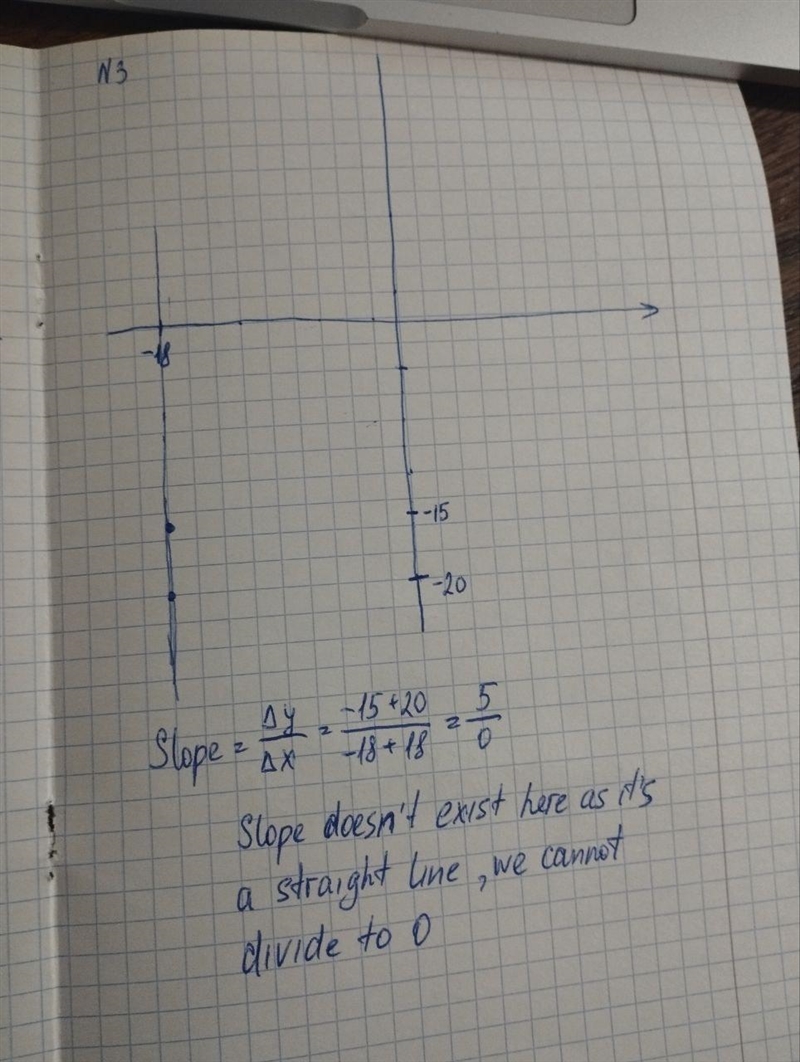 N3
-18
-15
-20
Slope = Δy/Δx = -15+20/-18+18 = 5/0
Slope doesn't exist here as it's
a straight line, we cannot
divide to 0